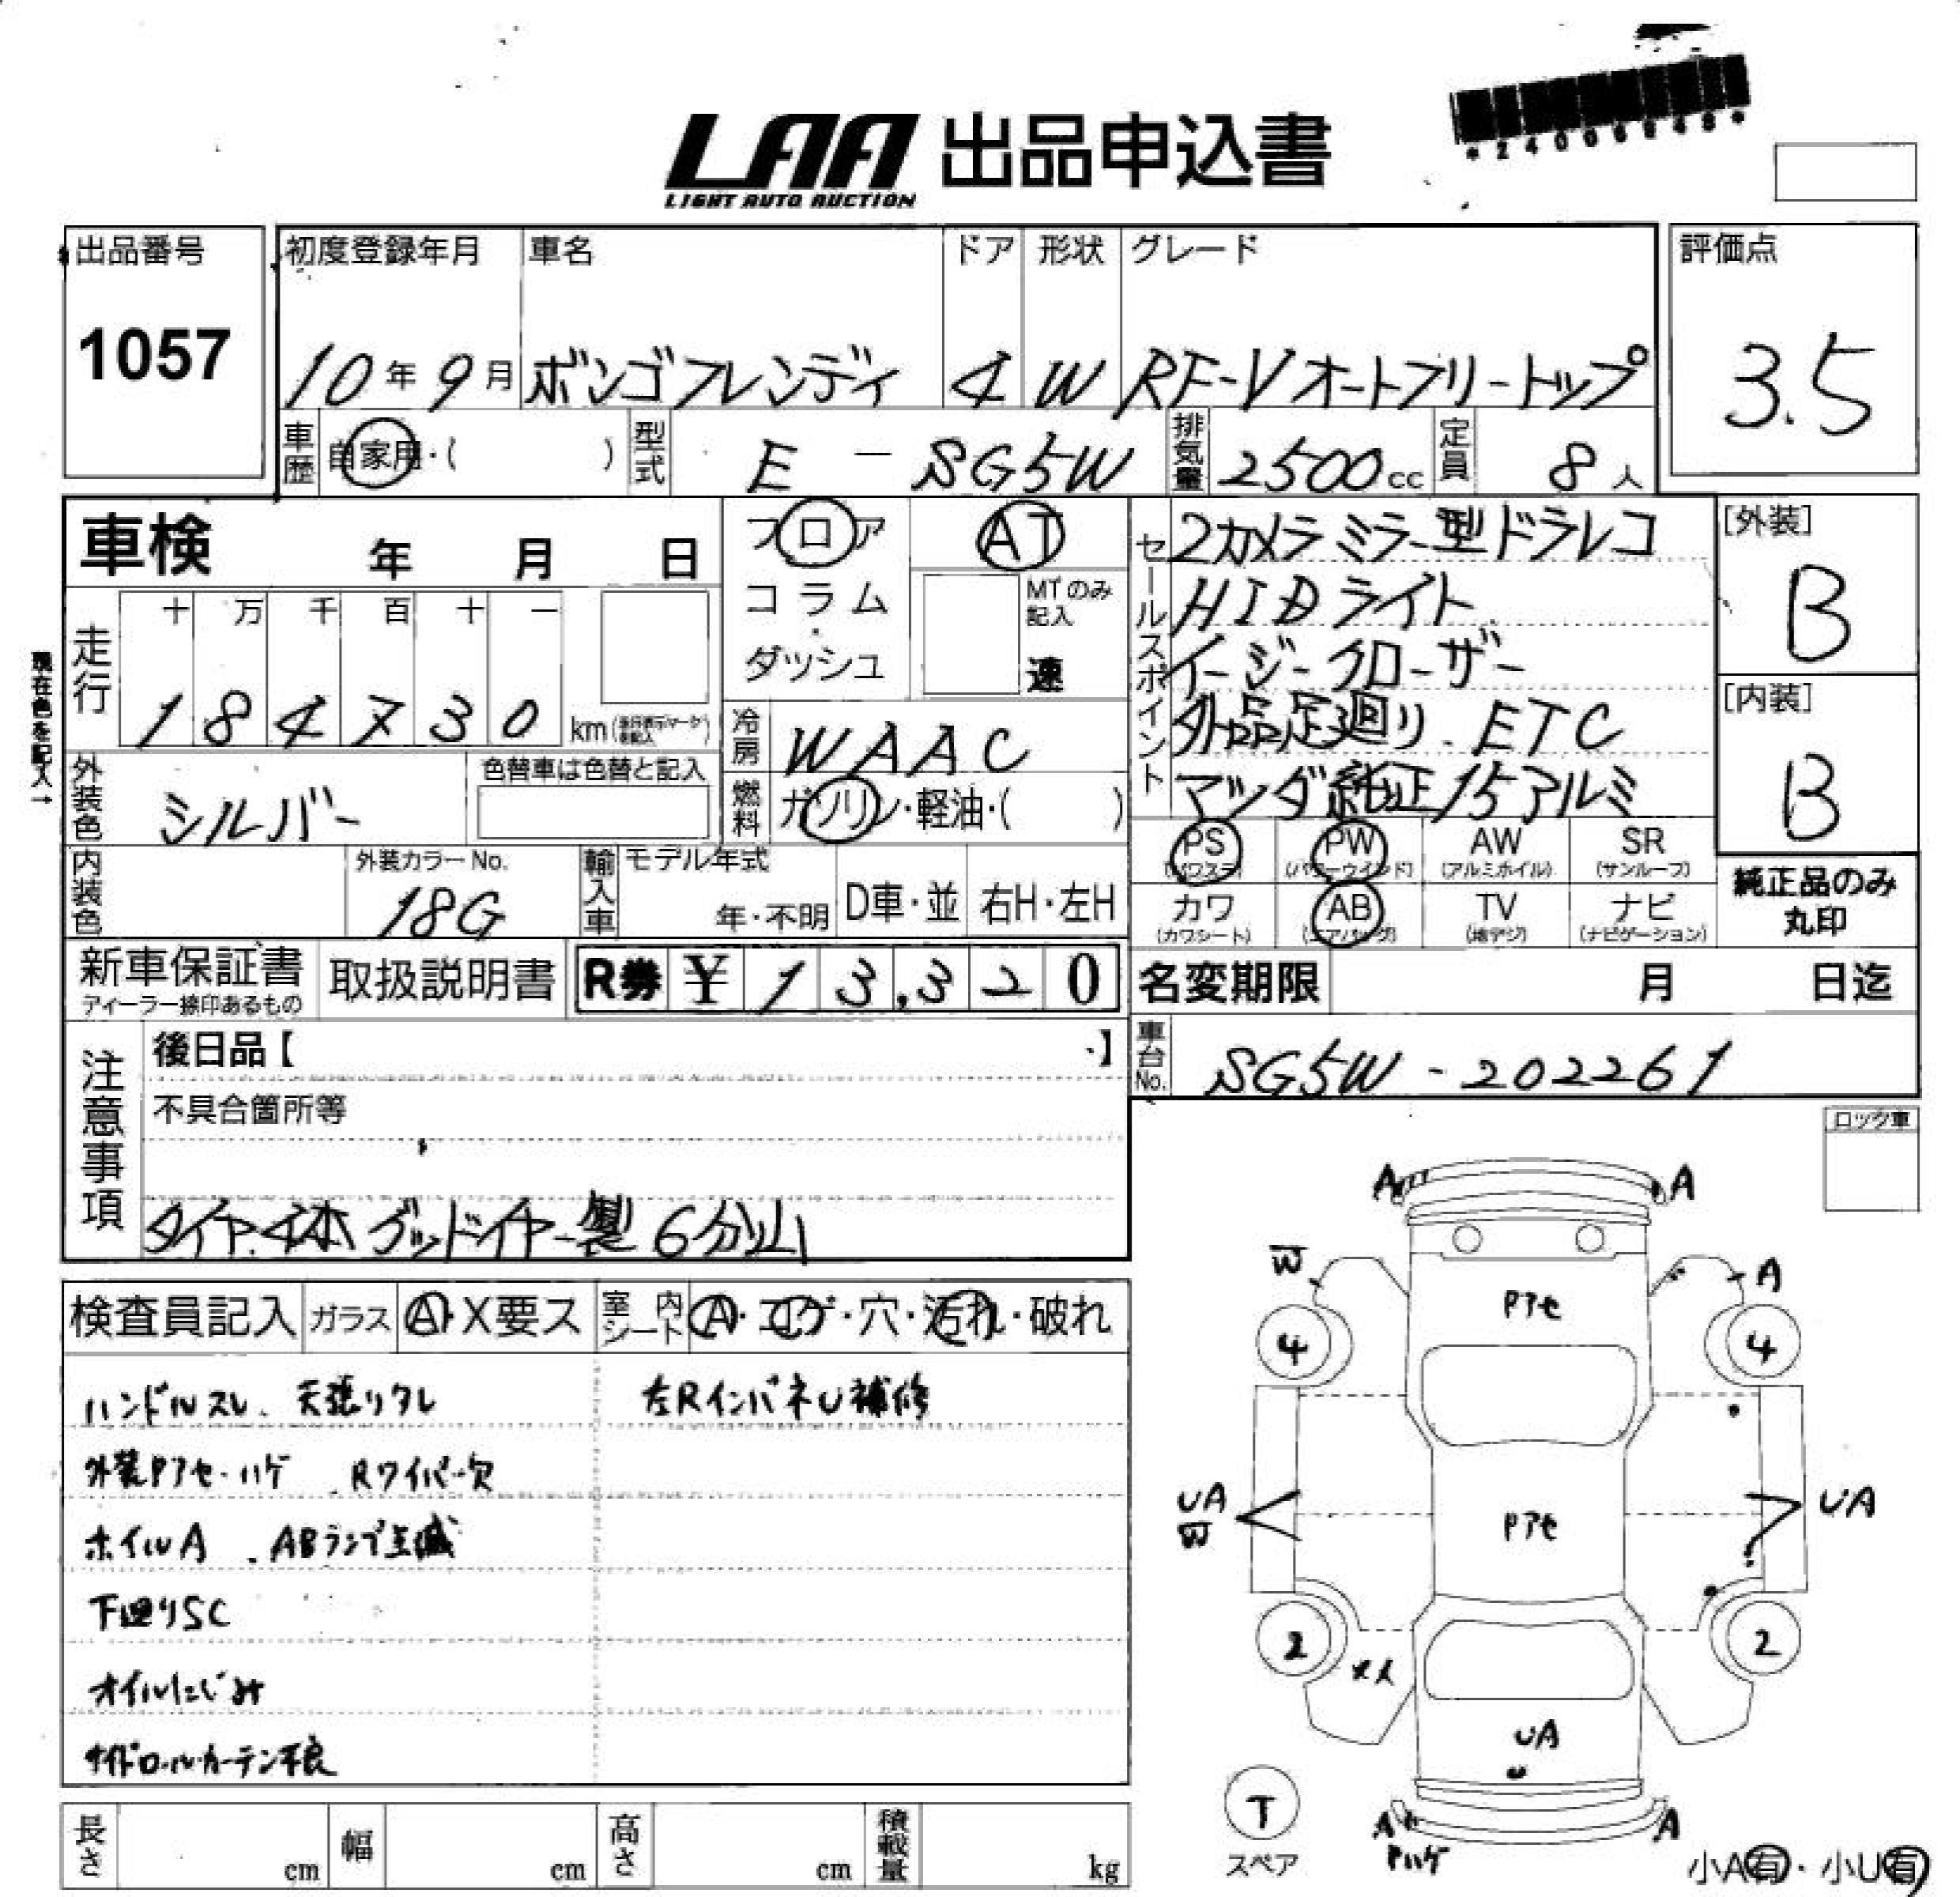 *24006848*
LAA 出品申込書
LIGHT AUTO AUCTION
出品番号 初度登録年月 車名 ドア 形状 グレード 評価点
1057 10年9月 ボンゴフレンディ 4 W RF-Vオートフリートップ 3.5
車歴 自家用・( ) 型式 E - SG5W 排気量 2500cc 定員 8人
車検 年 月 日 フロア AT セールスポイント 2カメラミラー型ドラレコ [外装]
十 万 千 百 十 一 コラム・ MTのみ記入 HIDライト B
現在色を記入→ 走行 ダッシュ 速 イージークローザー [内装]
184730 km 冷房 WAAC 外品足廻り. ETC B
外装色 シルバー 色替車は色替と記入 燃料 ガソリン・軽油・( ) マツダ純正15アルミ
PS (パワステ) PW (パワーウインド) AW (アルミホイル) SR (サンルーフ) 純正品のみ
内装色 外装カラーNo. 18G 輸入車 モデル年式 年・不明 D車・並 右H・左H カワ (カワシート) AB (エアバッグ) TV (地デジ) ナビ (ナビゲーション) 丸印
新車保証書 ディーラー捺印あるもの 取扱説明書 R券 ¥ 13,320 名変期限 月 日迄
注意事項 後日品【 】 車台No. SG5W-202261
不具合箇所等 ロック車
タイヤ.4本グッドイヤー製6分山
検査員記入 ガラス A・X要ス 室内シート A・コゲ・穴・汚れ・破れ
ハンドルスレ. 天張りタレ 左RインパネU補修
外装Pアセ・ハゲ .Rワイパー欠
ホイルA .ABランプ点滅
下回りSC
オイルにじみ
サイドロールカーテン不良
長さ cm 幅 cm 高さ cm 積載量 kg
A A
W A
Pアセ
4 4
UA UA
W Pアセ
2 2
UA
U
T
スペア
A A
Pハゲ
小A有・小U有